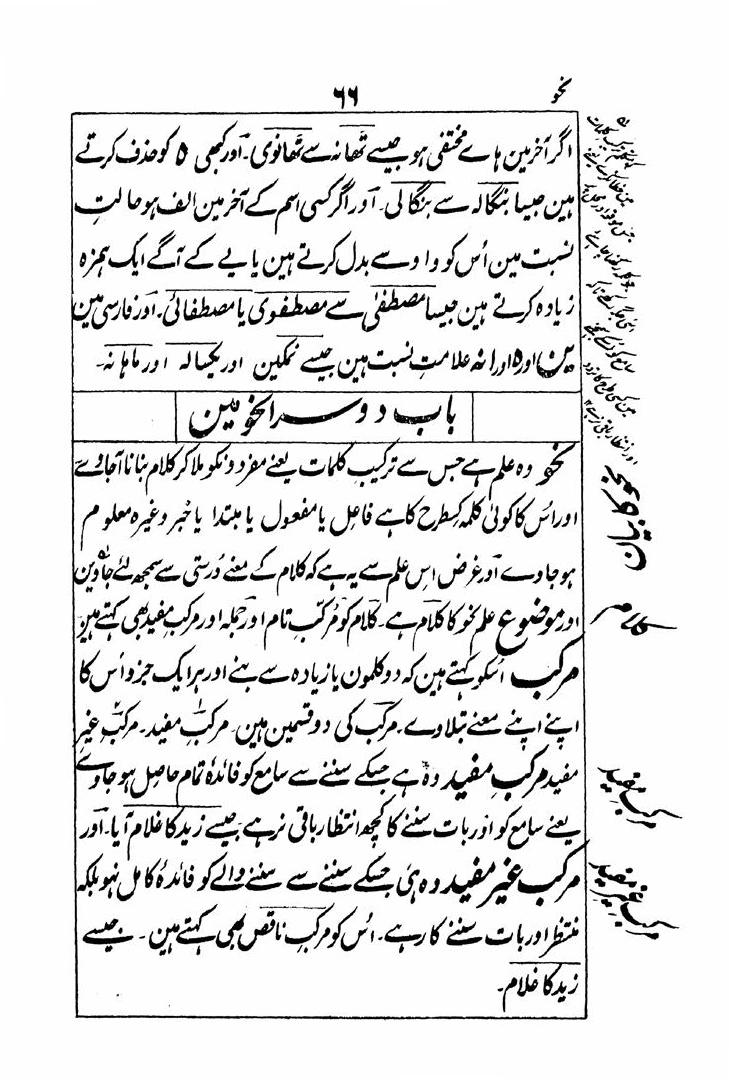 نحو
۶۶
اگر آخر مین ہاے مختفی ہو جیسے تھانہ سے تھانوی۔ اور کبھی ہ کو حذف کرتے
ہین جیسا بنگالہ سے بنگالی۔ اور اگر کسی اسم کے آخر مین الف ہو حالتِ
نسبت مین اُس کو واو سے بدل کرتے ہین یا یے کے آگے ایک ہمزہ
زیادہ کرتے ہین جیسا مصطفیٰ سے مصطفوی یا مصطفائی۔ اور فارسی مین
ین اور ہ اور انہ علامتِ نسبت ہین جیسے نمکین اور یکسالہ اور ماہانہ۔
باب دوسرا نحو مین
نحو وہ علم ہے جس سے ترکیب کلمات یعنے مفردونکو ملا کر کلام بنانا آجاوے
اور اس کا کوئی کلمہ کسطرح کا ہے فاعل یا مفعول یا مبتدا یا خبر وغیرہ معلوم
ہو جاوے اور غرض اِس علم سے یہ ہے کہ کلام کے معنے درستی سے سمجھ لئے جاوین
اور موضوع علم نحو کا کلام ہے۔ کلام کو مُرکّب تام اور جملہ اور مرکب مفید بھی کہتے ہین
مرکب اُسکو کہتے ہین کہ دو کلمون یا زیادہ سے بنے اور ہر ایک جزو اُس کا
اپنے اپنے معنے بتلاوے۔ مرکب کی دو قسمین ہین۔ مرکبِ مفید۔ مرکبِ غیر
مفید مرکبِ مفید وہ ہے جسکے سننے سے سامع کو فائدۂ تمام حاصل ہو جاوے
یعنے سامع کو اور بات سننے کا کچھ انتظار باقی نرہے جیسے زید کا غلام آیا۔ اور
مرکب غیر مفید وہ ہی جسکے سننے سے سننے والے کو فائدۂ کامل نہو بلکہ
منتظر اور بات سننے کا رہے۔ اُس کو مرکبِ ناقص بھی کہتے ہین۔ جیسے
زید کا غلام۔
نحو کا بیان
کلام
مرکب مفید
مرکب غیر مفید